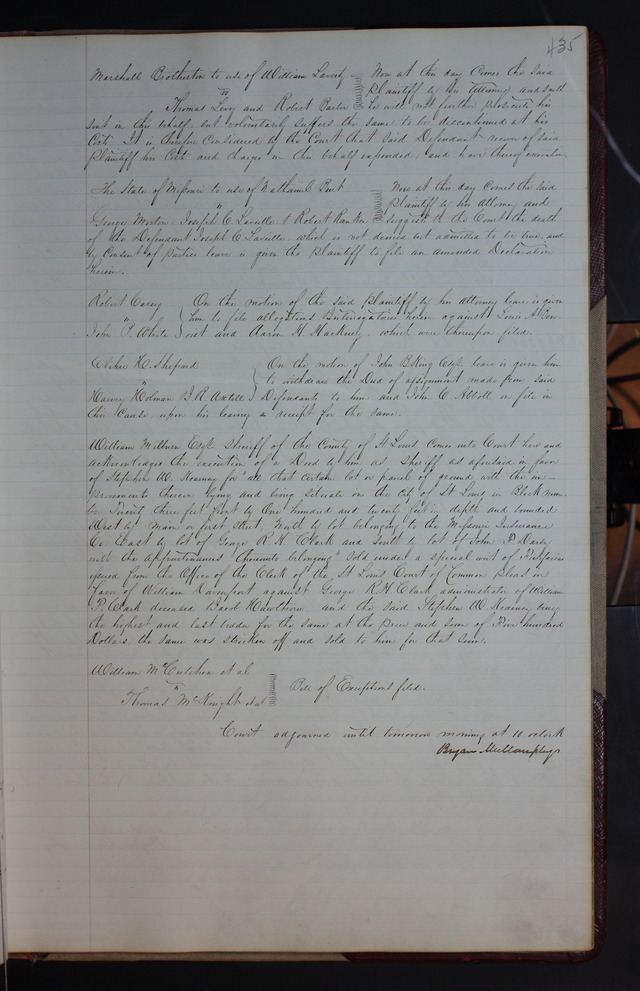 435
Marshall Brotherton to use of William Laverty Now at this day Comes the said
vs Plaintiff by his Attorney and saith
Thomas Levy and Robert he will not further prosecute his
suit in this behalf, but voluntarily suffers the same to be discontinued at his
Cost. It is therefore Considered by the Court that said Defendants recover of said
Plaintiff his Cost and charges in this behalf expended, and have thereof execution
The State of Missouri to use of Nathaniel Now at this day Comes the said
vs Plaintiff by his Attorney and
George Morton, Joseph C. Laveille & Robert Rankin suggests to the Court the death
of the Defendant Joseph C Laveille, which is not denied but admitted to be true, and
by Consent of parties leave is given the Plaintiff to file an amended Declaration
herein.
Robert On the motion of the said Plaintiff by his attorney leave is given
vs him to file allegations & Interrogatories herein against Louis A Ben
John P. White oist and Aaron H. Hackney, which were thereupon filed.
Elisha H. Shepard On the motion of John B King Esqr. leave is given him
vs to withdraw the Deed of assignment made from said
Harvey Holman B. R. Axtell Defendants to him and John C. Abbott on file in
this Cause, upon his leaving a receipt for the same.
William Milburn Esqr. Sheriff of the County of St Louis Comes into Court here and
acknowledges the execution of a Deed by him as Sheriff as aforesaid in favor
of Stephen W. Kearney for "all that certain lot or parcel of ground with the im-
provements thereon lying and being situate in the city of St Louis in Block num-
ber Seventy three feet front by One hundred and twenty feet in depth and bounded
West by Main or first Street, North by lot belonging to the Missouri Insurance
Co. East by lot of George R. H. Clark and South by lot of John P. Darby
with the appurtenances thereunto belonging" Sold under a special writ of Fierifacias
issued from the Office of the Clerk of the St Louis Court of Common pleas in
favor of William Davenport against George R. H. Clark administrator of William
P. Clark deceased Hawthorn and the said Stephen W Kearney being
the highest and last bidder for the same at the price and sum of hundred
Dollars, the same was stricken off and sold to him for that sum.
William McCutchen et al
vs Bill of Exceptions filed.
Thomas McKnight et al
Court adjourned until tomorrow morning at 10 oclock
Bryan Mullanphy